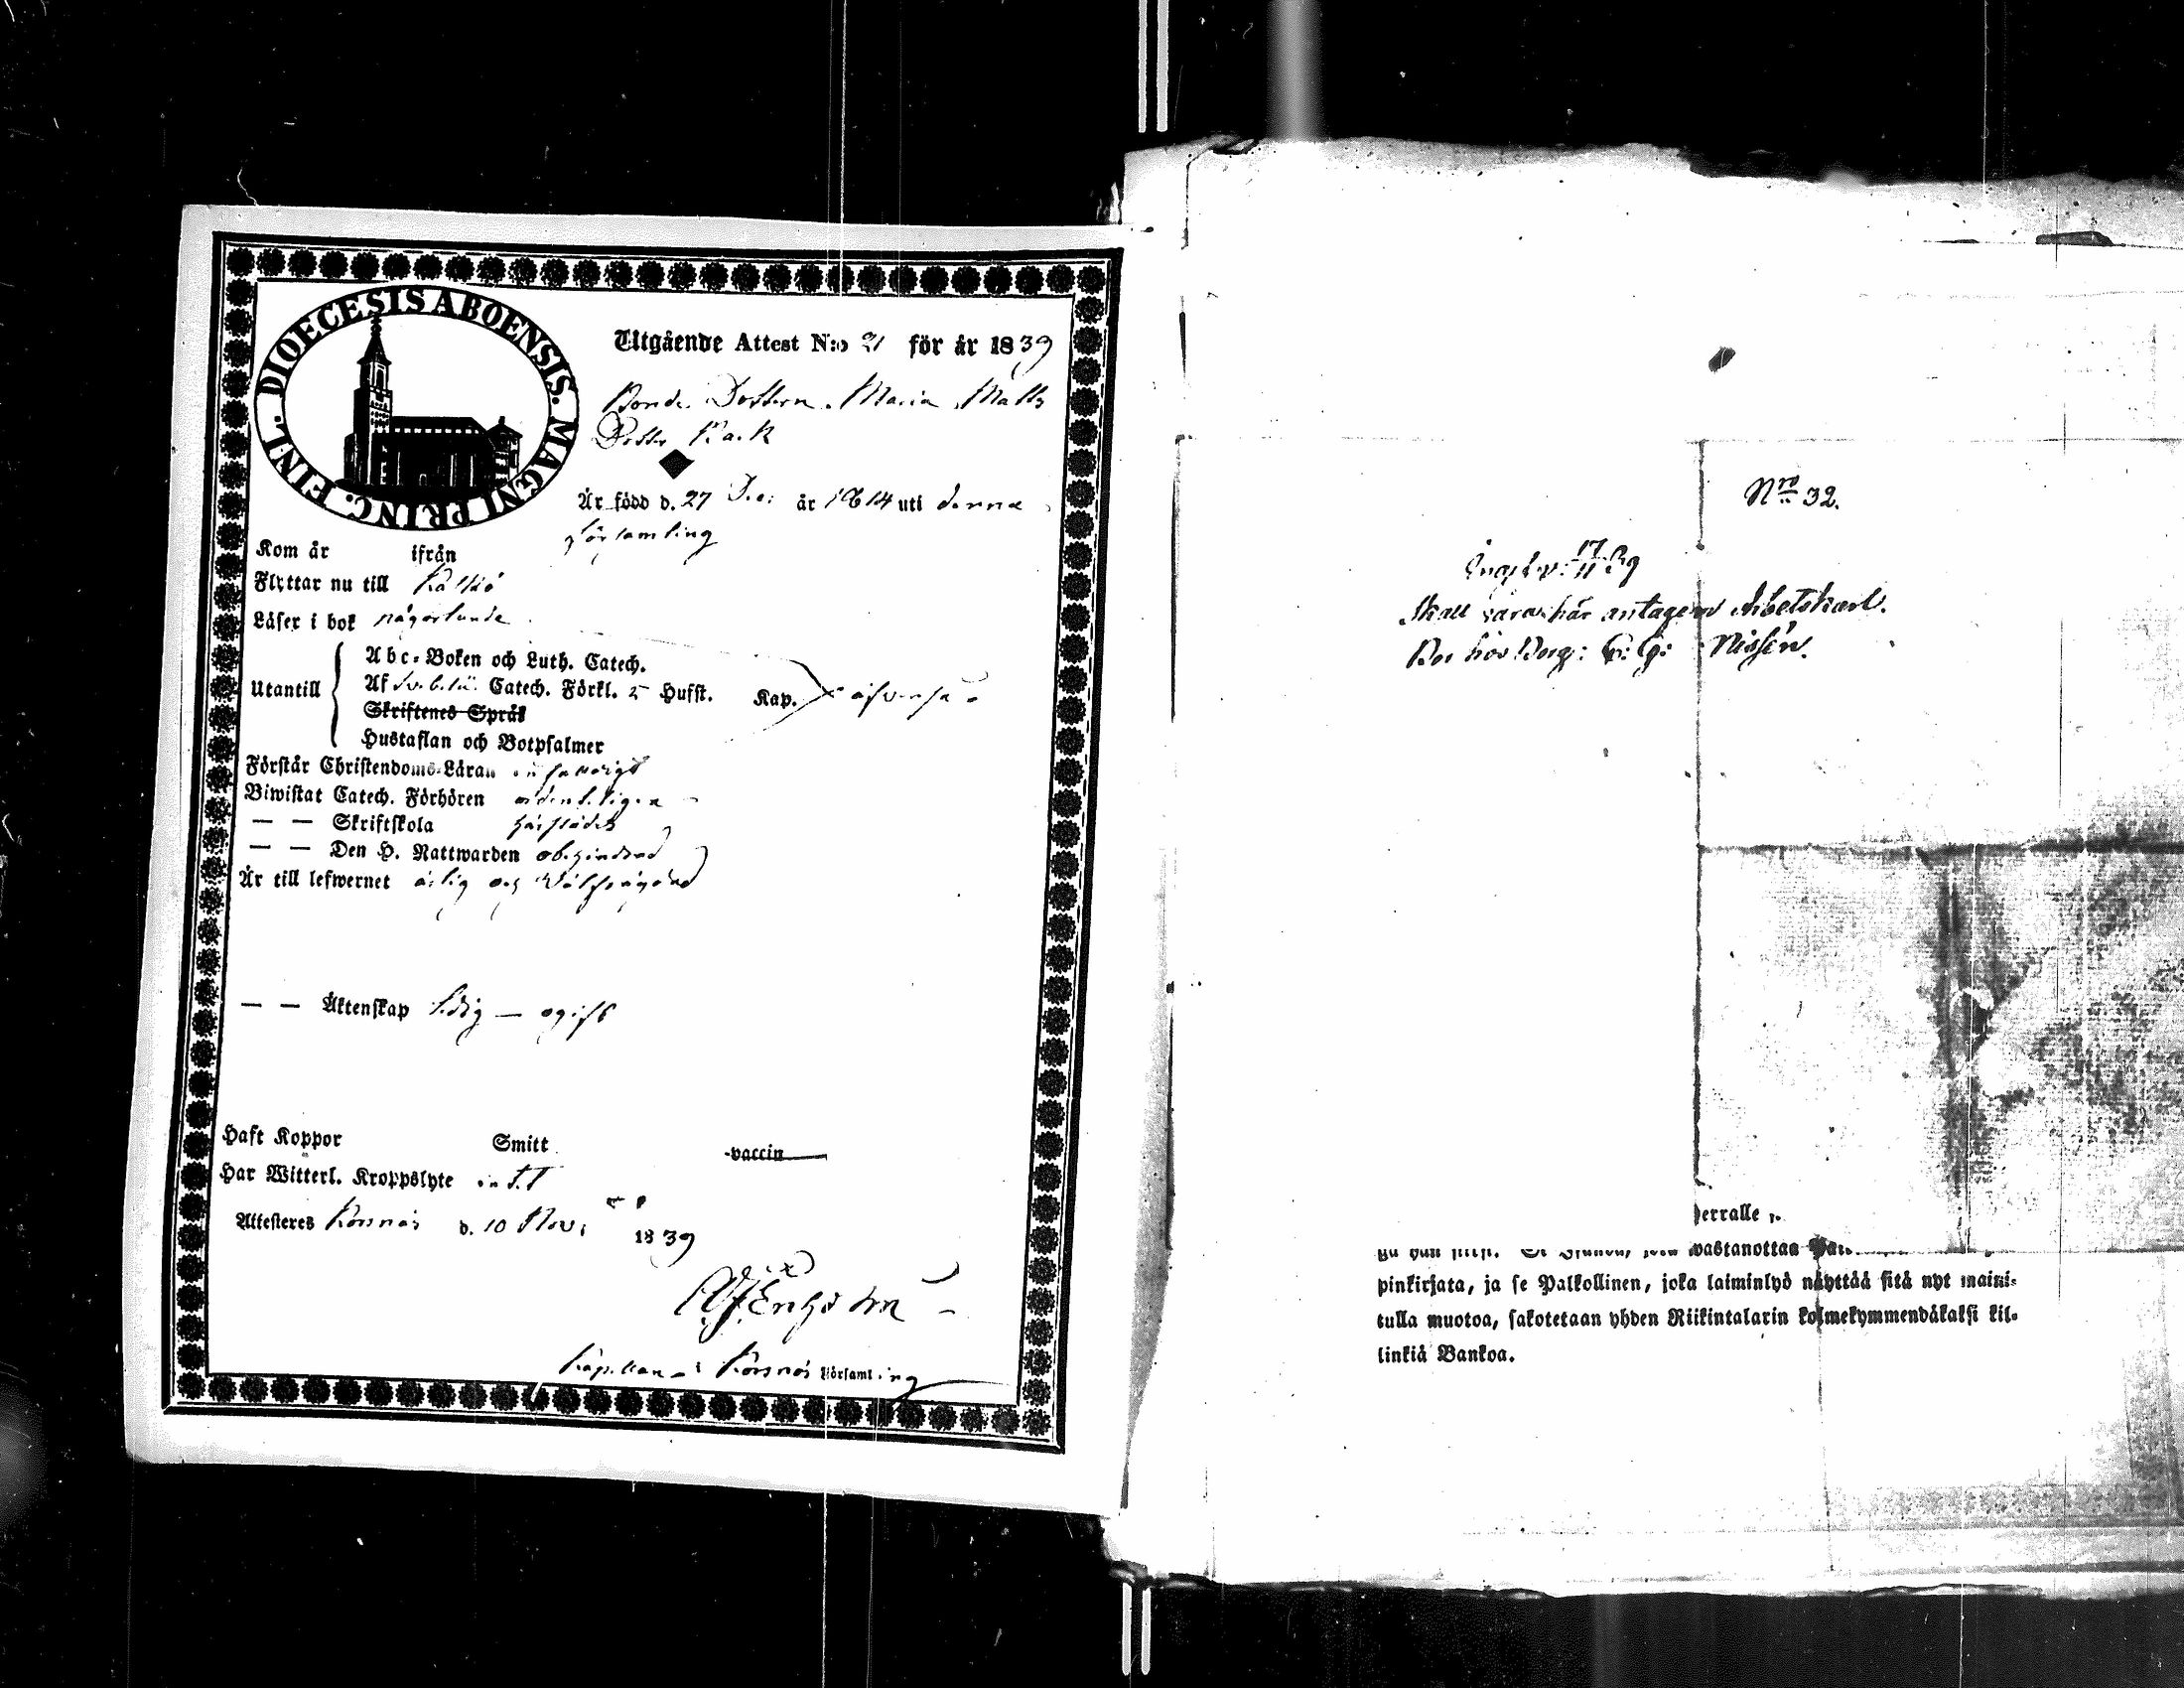 DIOECESIS ABOENSIS. MAGNI PRINC. FINL.
Utgående Attest N:o 21 för år 1839
Bonde Dottern Maria Matts
Dotter Back
Är född d. 27 Dec: år 1814 uti denna
församling
Kom år ifrån
Flyttar nu till
Läser i bok någorlunda
Utantill
Abc-Boken och Luth. Catech.
Af Svebelii Catech. Förkl. 5 Hufst. Kap.
Skriftenes Språk
Hustaflan och Botpsalmer
Förstår Christendoms-Läran enfaldigt
Biwistat Catech. Förhören ordentligen
— — Skriftskola
— — Den H. Nattwarden obehindrad
Är till lefwernet ärlig och Wälfrägdad
— — Äktenskap ledig — ogift
Haft Koppor Smitt vaccin
Har Witterl. Kroppslyte intet
Attesteres Korsnäs d. 10 Nov: 1839
Kapellan i Korsnäs Församling
Nro 32.
17/11 39
Skall vara här antagen Arbetskarl.
Bor hos Borg: C: G: Nissén.
herralle
wastanottaa
pinkirjata, ja se Palkollinen, joka laiminlyö näyttää sitä nyt maini-
tulla muotoa, sakotetaan yhden Riikintalarin kolmekymmendäkaksi kil-
linkiä Bankoa.